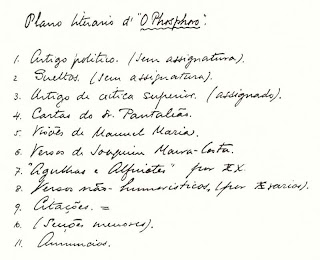 Plano literario d'"O Phosphoro".
1. Artigo politico. (sem assignatura).
2. Sueltos. (sem assignatura).
3. Artigo de critica superior. (assignado).
4. Cartas do Dr. Pantaleão.
5. Visões de Manuel Maria.
6. Versos de Joaquim Moura-Costa.
7. "Agulhas e Alfinetes" por XX.
8. Versos não-humoristicos, (por varios).
9. Citações. =
10. (Secções menores).
11. Annuncios.